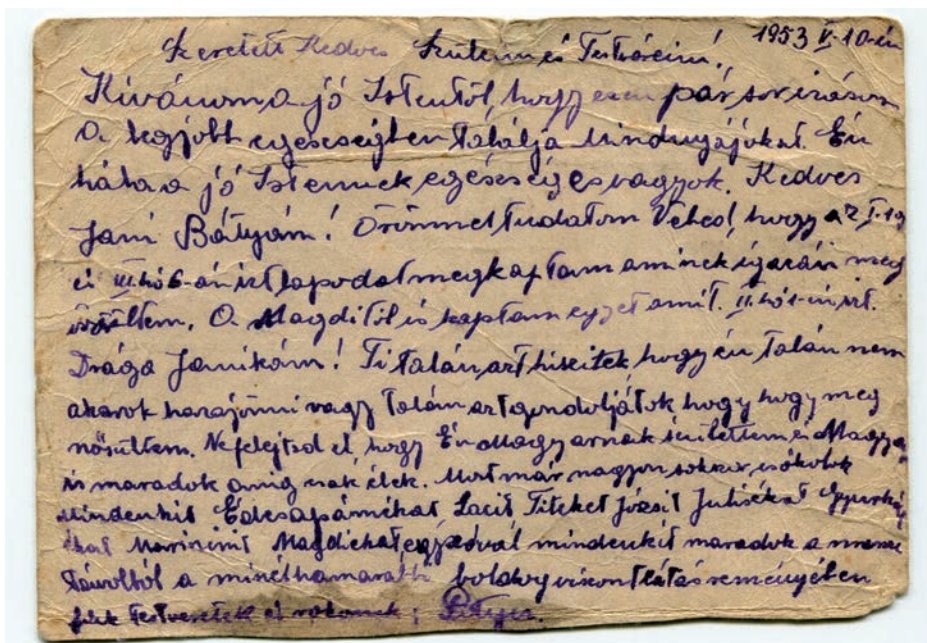 1953 V-10-én
Szeretett Kedves Szüleim és Testvéreim!
Kívánom a jó Istentől, hogy ezen pár sor irásom
a legjobb egeseségben találja Mindnyájukat. Én
hála a jó Istennek egéséséges vagyok. Kedves
Jani Bátyám! Örömmel tudatom Veled, hogy az I-19
és III. hó 6-án irt lapodat megkaptam aminek igazán meg
örültem. A Magditól is kaptam egyet amit. II. hó 1-én irt.
Drága Janikám! Ti talán azt hiszitek hogy én talán nem
akarok hazajönni vagy talán azt gondoljátok hogy hogy meg
nősültem. Ne felejtsd el, hogy Én Magyarnak születtem és Magyar
is maradok amig csak élek. Most már nagyon sokszor csókolok
Mindenkit Édesapámékat Lacit Titeket Józsit Julisékat
ékat Magdiékat mindenkit maradok a messze
távolból a minélhamarabbi boldog viszontlátás reményében
testveretek és rokonuk;